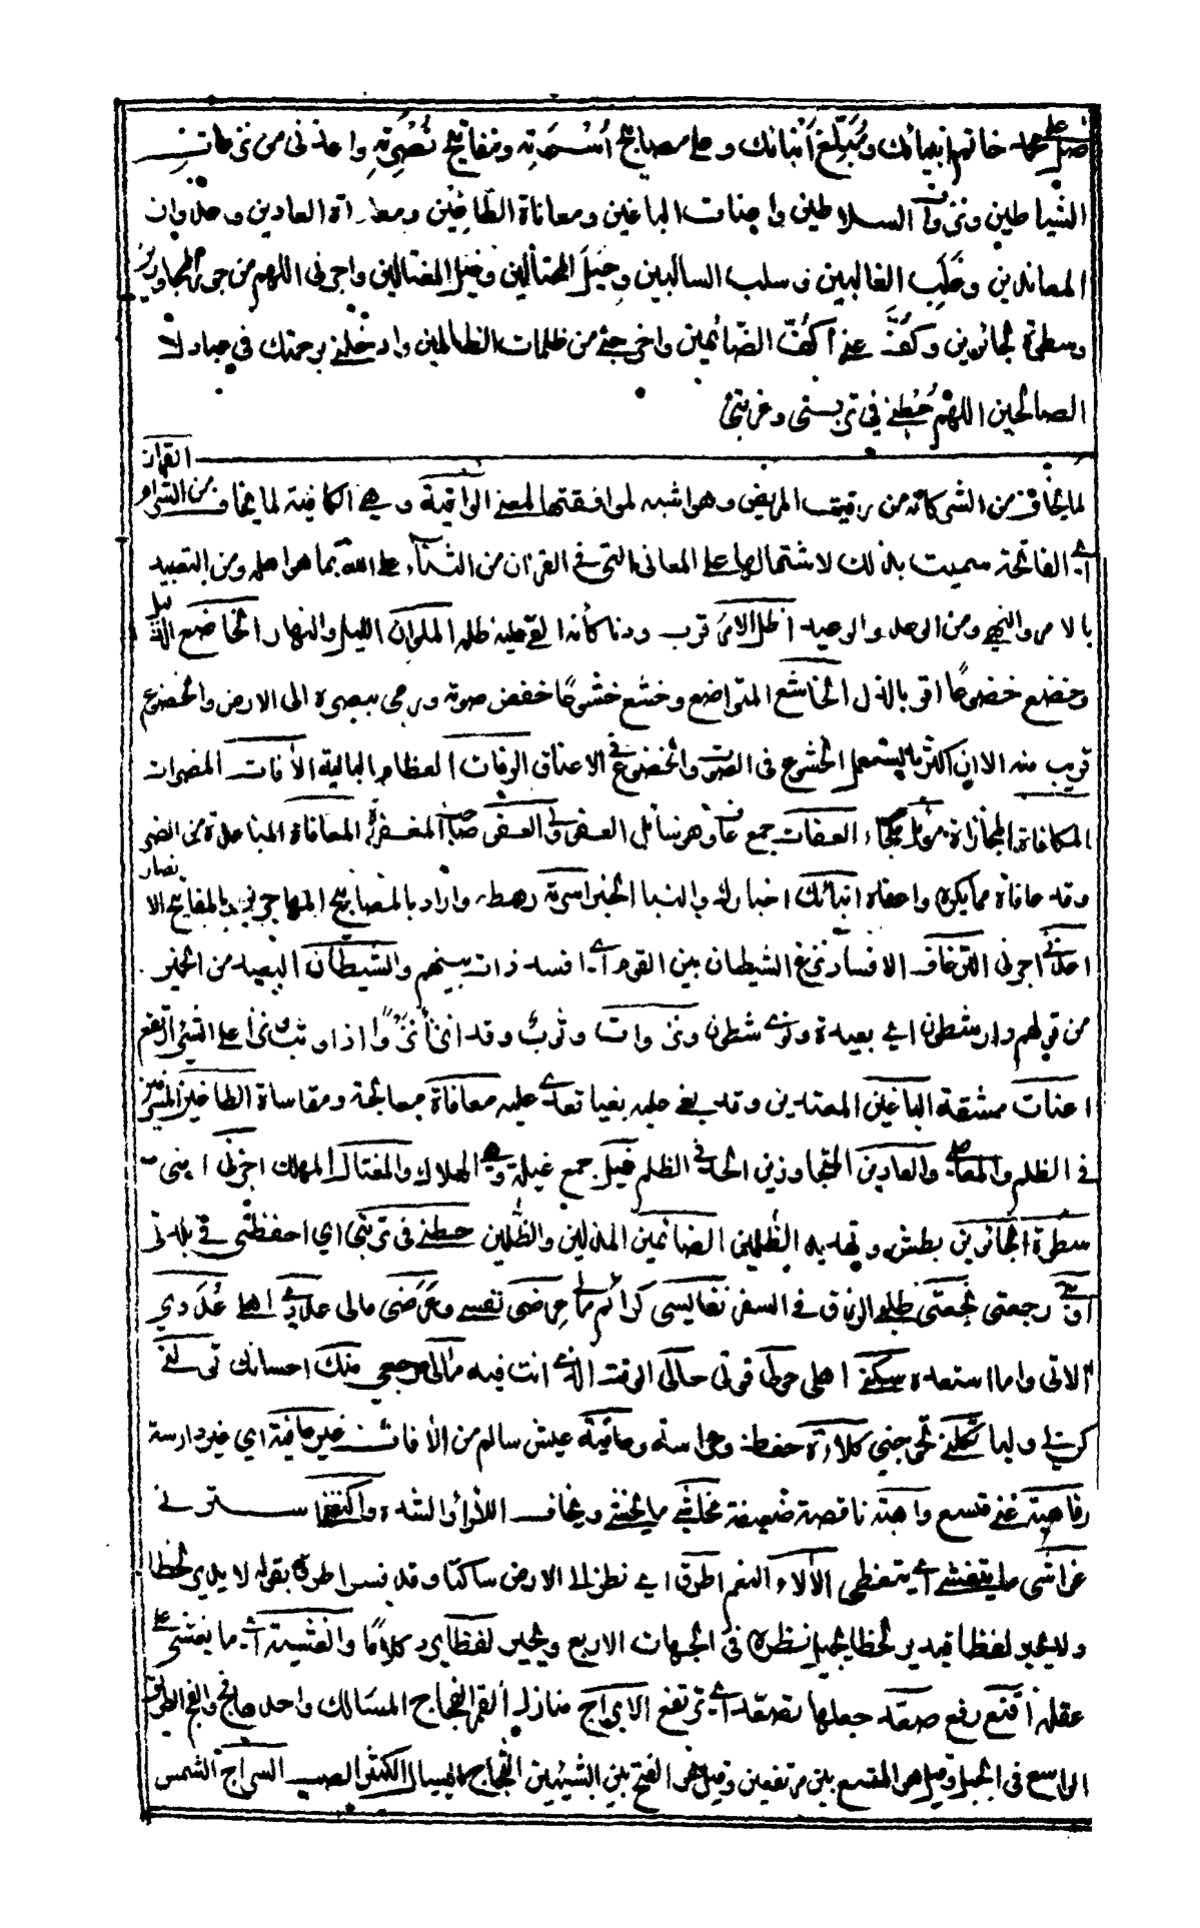 صل على محمد خاتم انبيائك ومُبَلِّغ اَنْبائك وعلى مصابيح اُسْرَتِه ومفاتيح نُصْرَتِه واعذني من نزغات
الشياطين ونزوات السلاطين واعنات الباغين ومعاناة الطاغين ومعاداة العادين وعدوان
المعاندين وغَلَب الغالبين وسلب السالبين وحِيَل المحتالين وغِيَل المغتالين واجرني اللهم من جور المجاورين
وسطوة الجائرين وكُفَّ عني اَكُفَّ الضّائمين واخرجني من ظلمات الظالمين وادخلني برحمتك في عبادك
الصالحين اللهم حُطْني في تربتي وغربتي
القران
لما يخاف من الشرك من المريض وهو اشبه لموافقتها لمعنى الواقية وهي الكافية لما يخاف من
اي الفاتحة سميت بذلك لاشتمالها على المعاني التي في القران من الثناء على الله بما هو اهله ومن التعبيد
بالامر والنهي ومن الوعد والوعيد اظل الامر قرب ودنا كأنه القى عليه ظله الملوان الليل والنهار الخاضع الذليل
وخضع خضوعًا اقر بالذل الخاشع المتواضع وخشع خشوعًا خفض صوته ورمى ببصره الى الارض والخضوع
قريب منه الا ان اكثر ما يستعمل الخشوع في الصوت والخضوع في الاعناق الرفات العظام البالية الآفات المضرات
المكافاة المجازاة موئل ملجاء العفاة جمع عاف وهو سائل العفو المغفرة المعافاة المباعدة من الضر
وقد عافاه مما يكره واعفاه انبائك اخبارك والنبا الخبر اسرته رهطه واراد بالمصابيح المهاجرين وبالمفاتيح الانصار
اعذني اجرني النزغات الافساد نزغ الشيطان بين القوم اي افسد ذات بينهم والشيطان البعيد من الخير
من قولهم دار شطون اي بعيدة ونوى شطون ونزوات وثوب وقد نزا نزوًا اذا وثب نزا على الشئ ارتفع
اعنات مشقة الباغين المعتدين وقد بغى عليه بغيا تعدى عليه معاناة معالجة ومقاساة الطاغين المسرفين
في الظلم والمعاصي والعادين المتجاوزين الحد في الظلم غيل جمع غيلة وهي الهلاك والمغتال المهلك اجرني امني من
سطوة الجائرين بطش وتهديد الظلمين الضائمين المذلين والظلمين حطني في تربتي اي احفظني في بلدتي
اوبتي رجعتي نجعتي طلب الرزاق في السفر نفائسي كرائم مالي عرضي نفسي وعَرَضي مالي عددي اهلي عُدَدي
الاتي واما استعده سكني اهلي حولي قوتي حالي الوقت الذي انت فيه مالي مرجعي منك احسانك
تكلني تحوجني كلاءة حفظ وحراسة وعافية عيش سالم من الآفات غير عافية اي غير دارسة
رفاهية غنى توسع واهية ناقصة ضعيفة مخاشي ما يخشى ويخاف اللاواء الشدة واكنفني استرني
غواشي ما يتغشى اي يتغطى الآلاء النعم اطرق اي نظر الى الارض ساكتا وقد فسر اطرق بقوله لا يدير لحظا
ولا يحير لفظا فيدير لحظا يجيل نظره في الجهات الاربع ويحير لفظا يرد كلامًا والغشية اي ما يغشى على
عقله اقنع رفع صعّد جعلها تصعد اي ترتفع الابراج منازل القمر الفجاج المسالك واحدها فج والفج الطريق
الواسع في الجبل وقيل هو المتسع بين مرتفعين وقيل هو الفتح بين الشيئين الثجاج السيال الكثير الصب السراج الشمس